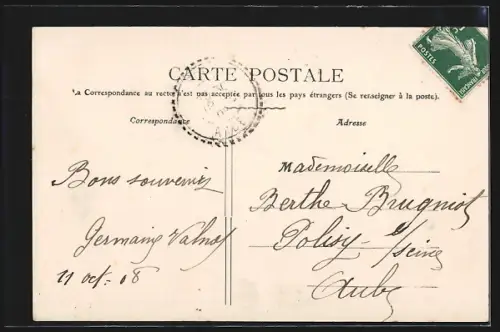 CARTE POSTALE
La Correspondance au recto n'est pas acceptée par tous les pays étrangers (Se renseigner à la poste).
Correspondance
Adresse
Bons souvenirs
Germaine
11 oct. 08
Mademoiselle
Berthe Brugniot
Polisy s/Seine
Aube
POSTES